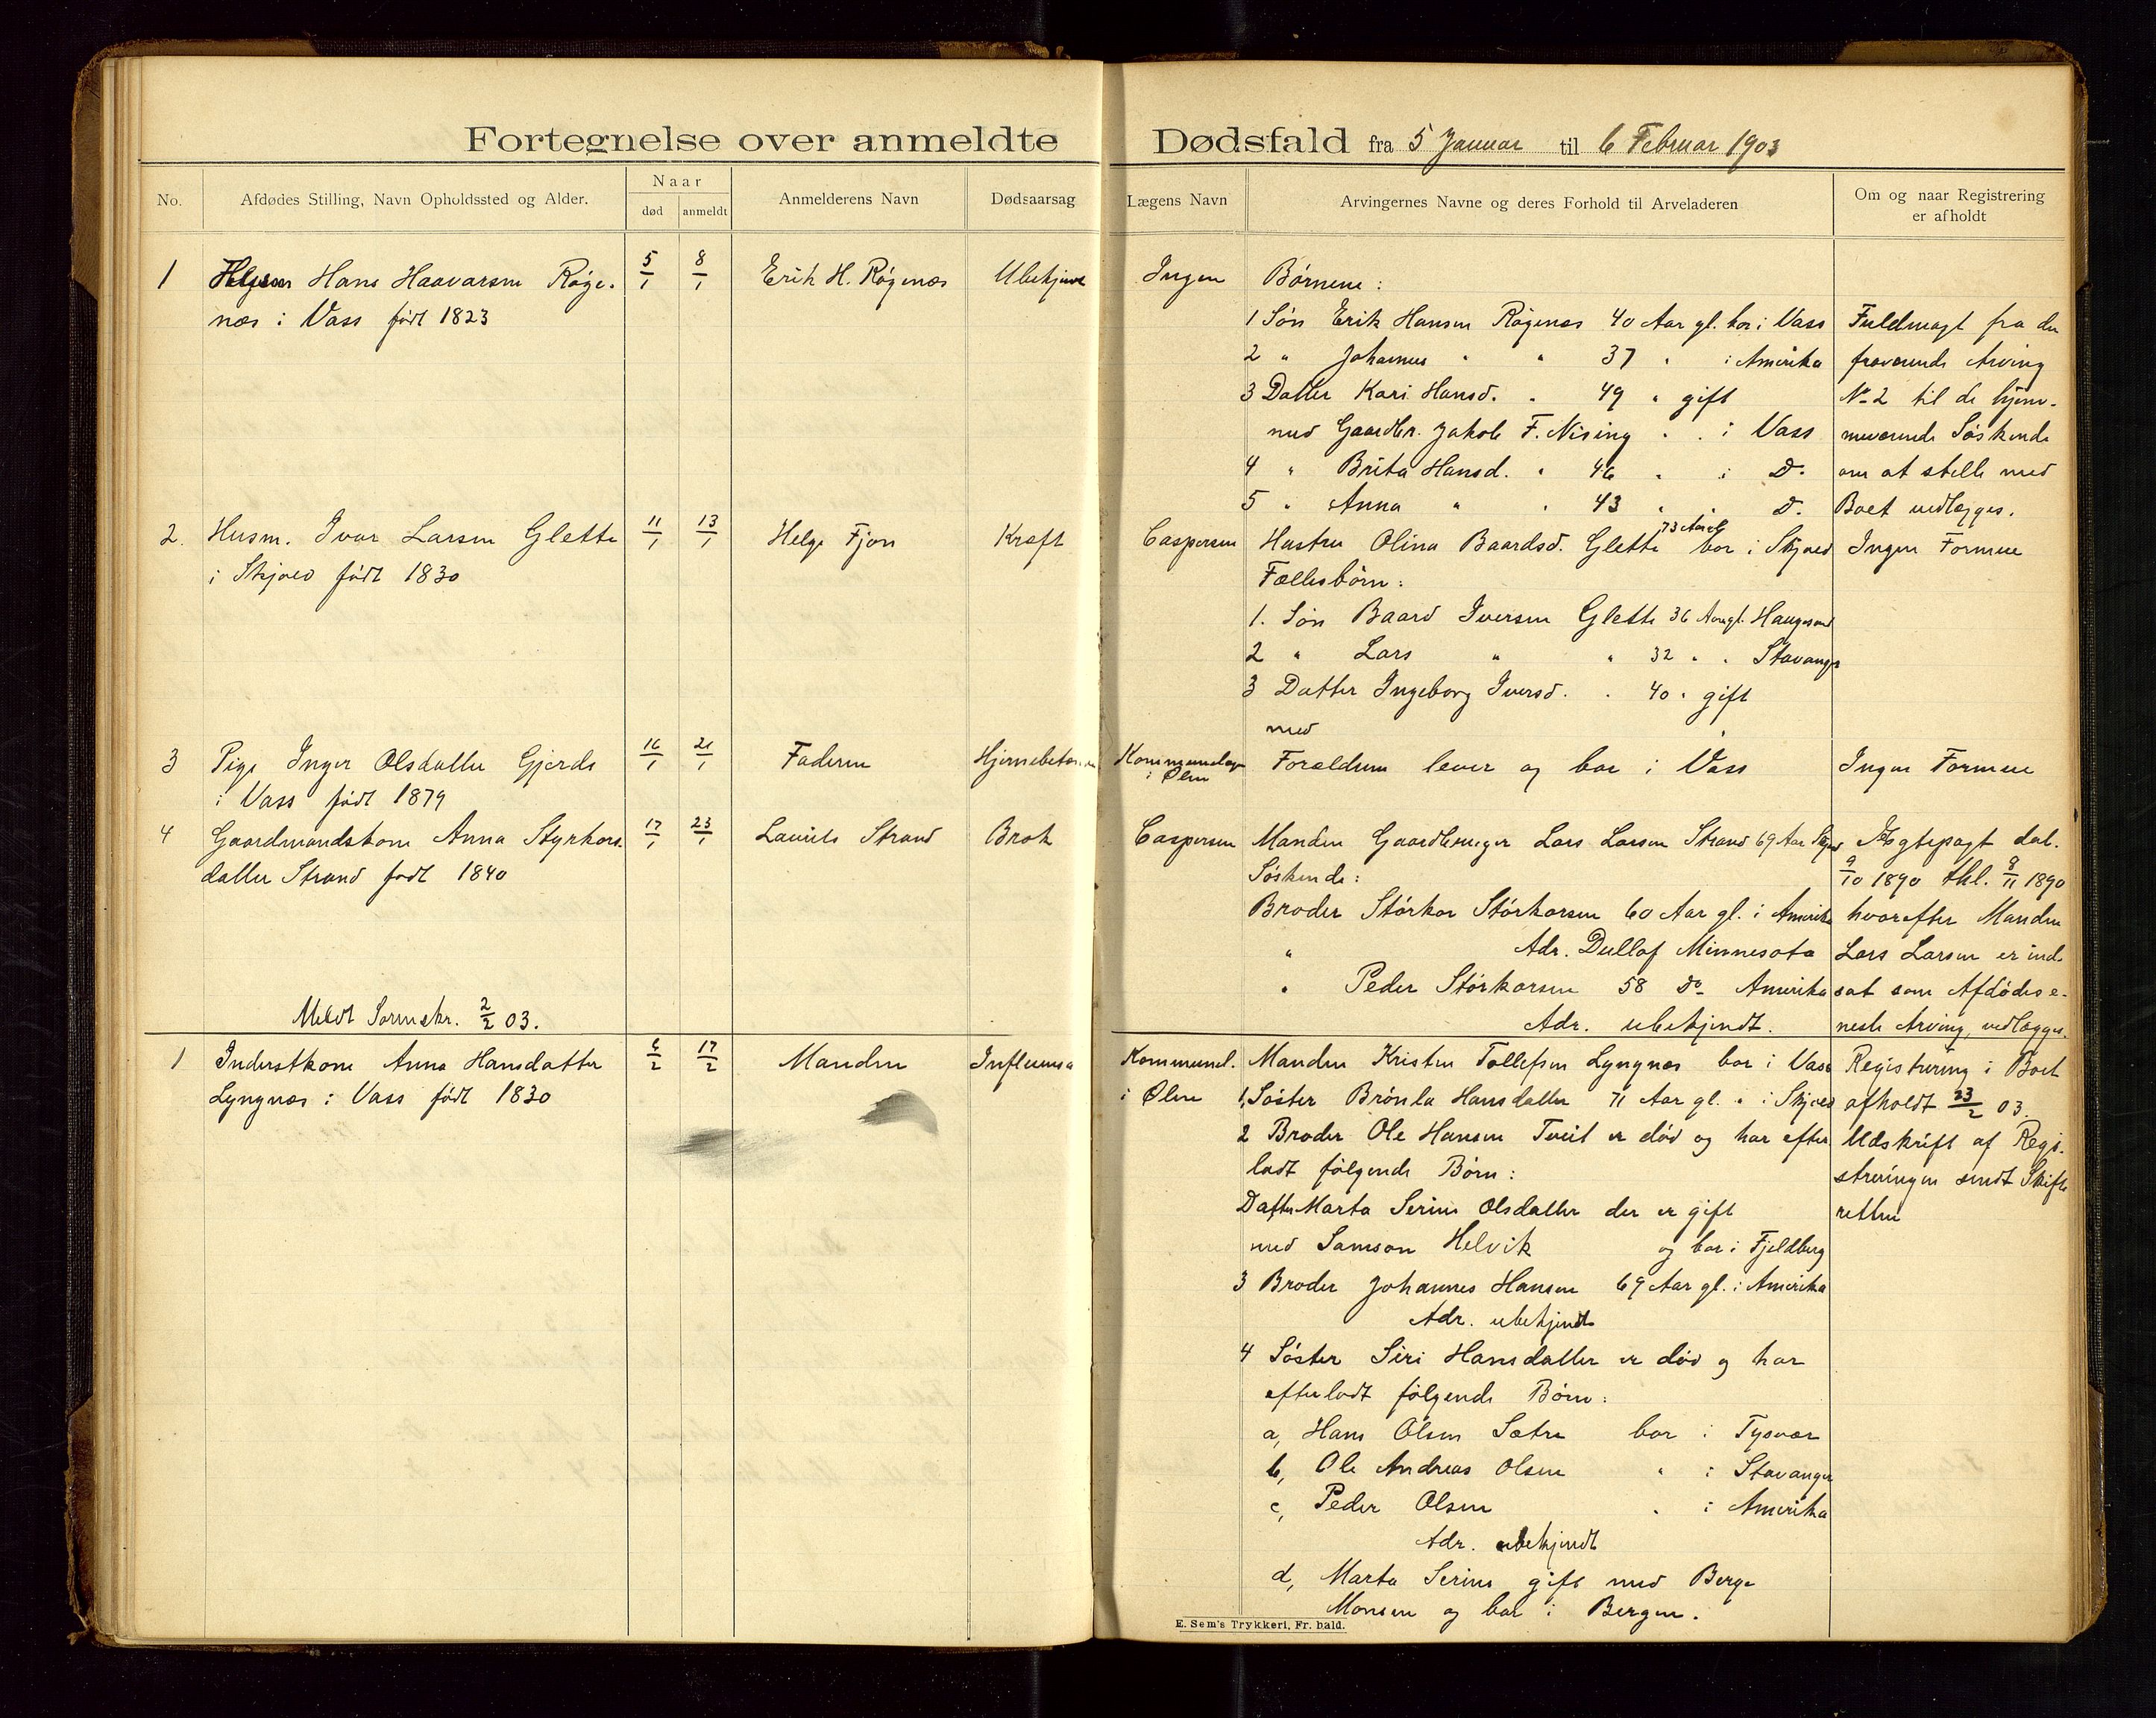 Fortegnelse over anmeldte Dødsfald fra 5 Januar til 6 Februar 1903
No.
Afdødes Stilling, Navn Opholdssted og Alder.
Naar
død
anmeldt
Anmelderens Navn
Dødsaarsag
Lægens Navn
Arvingernes Navne og deres Forhold til Arveladeren
Om og naar Registrering
er afholdt
1 Hans Haavarsen Røge-
næs i Vass født 1823
5/1 8/1
Erik H. Røgenæs
Ubekjendt
Ingen
Børnene:
1 Søn Erik Hansen Røgenæs 40 Aar gl. bor i Vass
2 " Johannes " " 37 " i Amerika
3 Datter Kari Hansd. " 49 " gift
med Gaardbr. Jakob F. Nising " " i Vass
4 " Brita Hansd. " 46 " i Do.
5 " Anna " " 43 " " Do.
Fuldmagt fra den
fraværende Arving
No 2 til de hjem-
meværende Søskende
om at stelle med
Boet vedlægges.
2. Husm. Ivar Larsen Glette
i Skjold født 1830
11/1 13/1
Helge Fjon
Kræft
Caspersen
Hustru Olina Baardsd. Glette 73 Aar gl. bor i Skjold
Fællesbørn:
1. Søn Baard Iversen Glette 36 Aar gl. Haugesund
2 " Lars " " 32 " " Stavanger
3 Datter Ingeborg Iversd. " 40 " gift
med
Ingen Formue
3 Pige Inger Olsdatter Gjerde
i Vass født 1879
16/1 21/1
Faderen
Hjernebetændelse
Kommunelæge
i Ølen
Forældrene lever og bor i Vass
Ingen Formue
4 Gaardmandskone Anna Styrkors-
datter Strand født 1840
17/1 23/1
Laurits Strand
Brok
Caspersen
Manden Gaardbruger Lars Larsen Strand 69 Aar Skjold
Søskende:
Broder Störkor Störkorsen 60 Aar gl. i Amerika
" Adr. Dullof Minnesota
" Peder Störkorsen 58 Do Amerika
Adr. ubekjendt.
Ægtepagt dat.
9/10 1890 thl. 8/11 1890
hvorefter Manden
Lars Larsen er ind-
sat som Afdødes e-
neste Arving, vedlægges.
Meldt Sorenskr. 2/2 03.
1 Inderstkone Anna Hansdatter
Lyngnæs i Vass født 1830
6/2 17/2
Manden
Influensa
Kommunel.
i Ølen
Manden Kristen Tollefsen Lyngnæs bor i Vass
1, Søster Brønla Hansdatter 71 Aar gl. " i Skjold
2 Broder Ole Hansen Tveit er död og har efter-
ladt følgende Børn:
Datter Marta Serine Olsdatter der er gift
med Samson Helvik og bor i Fjeldberg
3 Broder Johannes Hansen 69 Aar gl. i Amerika
Adr. ubekjendt
4 Søster Siri Hansdatter er död og har
efterladt følgende Børn:
a, Hans Olsen Sætre bor i Tysvær
b, Ole Andreas Olsen " i Stavanger
c, Peder Olsen " i Amerika
Adr. ubekjendt
d, Marta Serine gift med Berge
Monsen og bor i Bergen.
Registrering i Boet
afholdt 23/2 03.
Udskrift af Regi-
streringen sendt Skifte
retten
E. Sem's Trykkeri, Fr.hald.